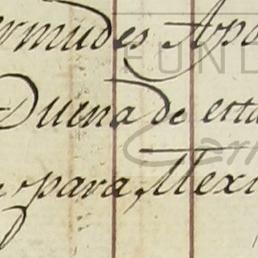 ermudes Apo
Duena de esta
para Mexi